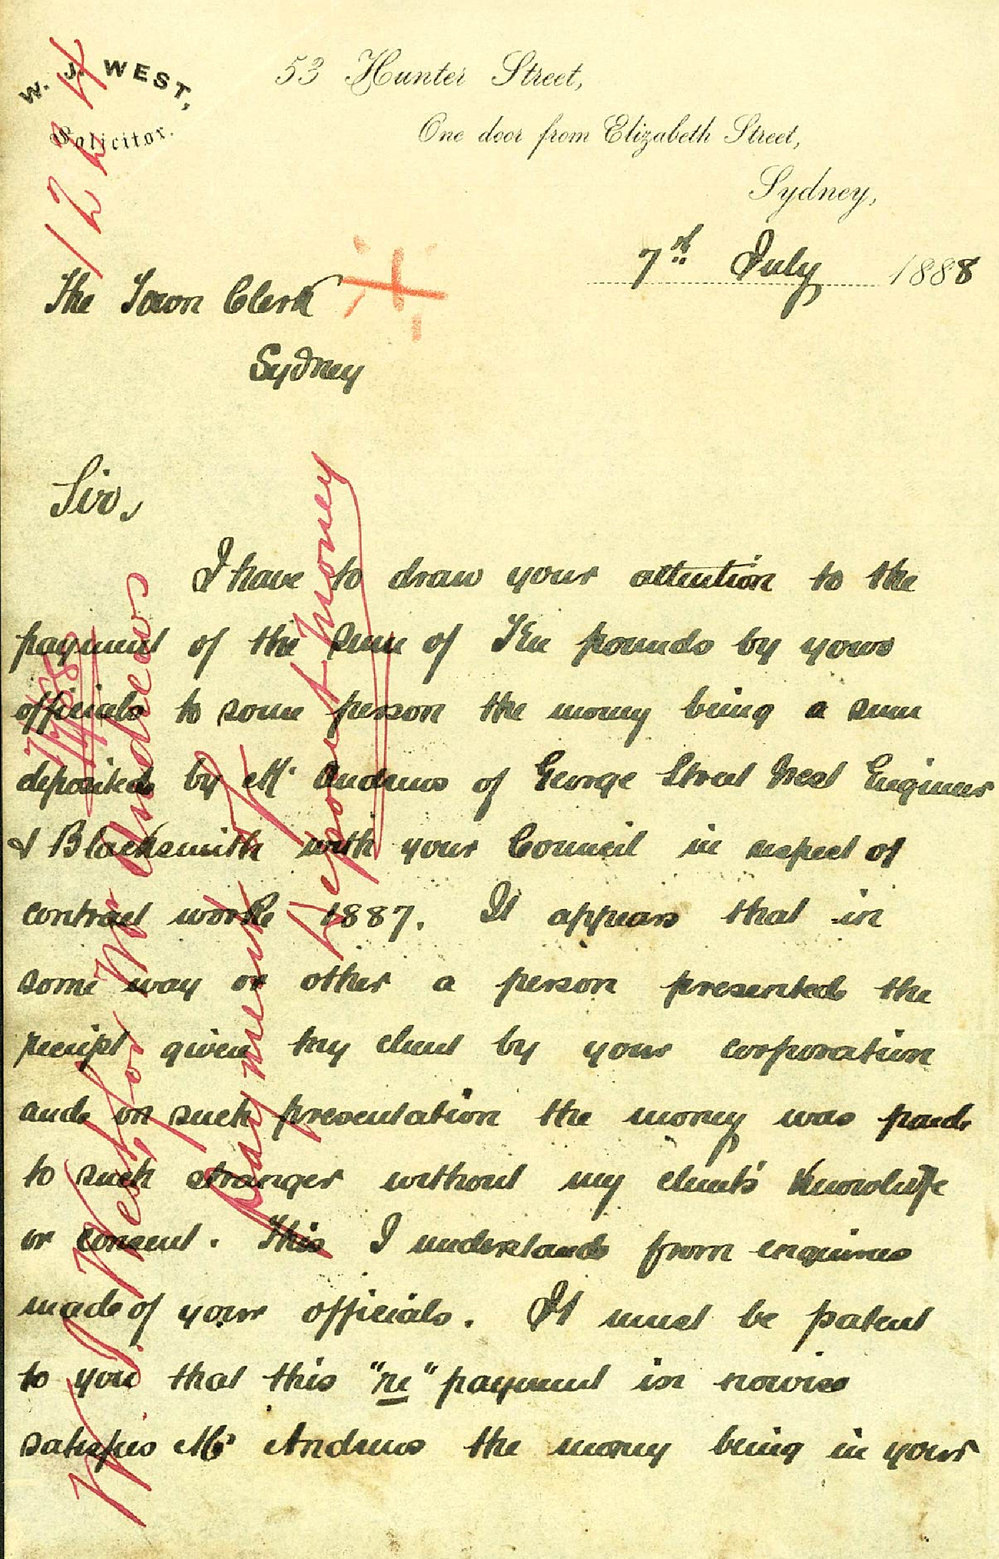 W. J. WEST,
Solicitor.
53 Hunter Street,
One door from Elizabeth Street,
Sydney,
7th July 1888
1224
The Town Clerk
Sydney
Sir,
I have to draw your attention to the
payment of the sum of Ten pounds by your
officials to some person the money being a sum
deposited by Mr Andrews of George Street West Engineer
& Blacksmith with your Council in respect of
contract works 1887. It appears that in
some way or other a person presented the
receipt given my client by your corporation
and on such presentation the money was paid
to such stranger without my client's knowledge
or consent. This I understand from enquiries
made of your officials. It must be patent
to you that this "re" payment in nowise
satisfies Mr Andrews the money being in your
W. J. West for Mr Andrews
Payment of
Deposit money